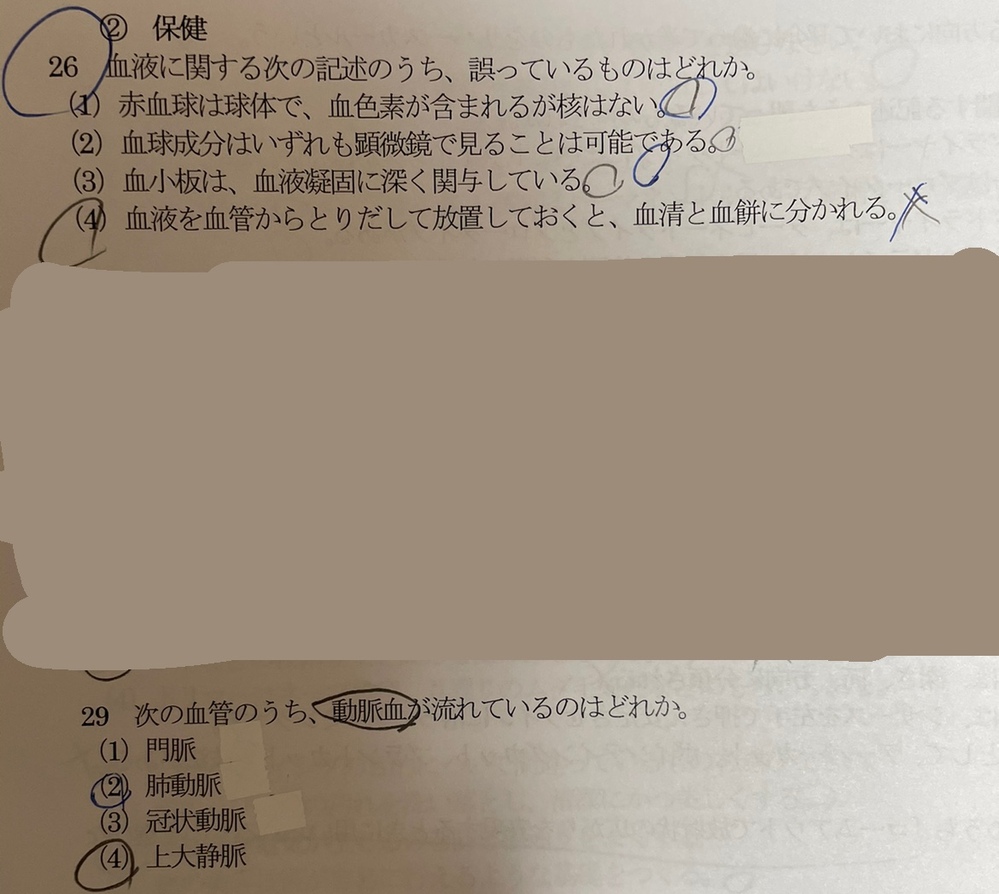 ② 保健
26 血液に関する次の記述のうち、誤っているものはどれか。
(1) 赤血球は球体で、血色素が含まれるが核はない。
(2) 血球成分はいずれも顕微鏡で見ることは可能である。
(3) 血小板は、血液凝固に深く関与している。
(4) 血液を血管からとりだして放置しておくと、血清と血餅に分かれる。
29 次の血管のうち、動脈血が流れているのはどれか。
(1) 門脈
(2) 肺動脈
(3) 冠状動脈
(4) 上大静脈